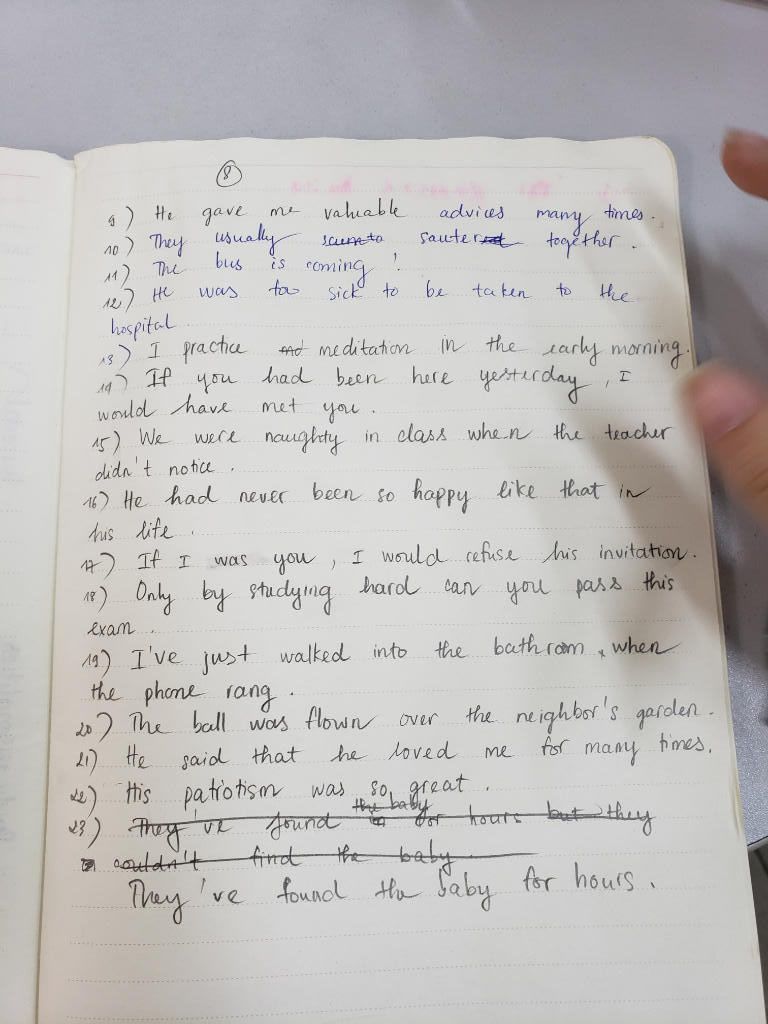 8
9) He gave me valuable advices many times.
10) They usually saunter together.
11) The bus is coming!
12) He was too sick to be taken to the
hospital
13) I practice meditation in the early morning.
14) If you had been here yesterday, I
would have met you.
15) We were naughty in class when the teacher
didn't notice.
16) He had never been so happy like that in
his life.
17) If I was you, I would refuse his invitation.
18) Only by studying hard can you pass this
exam.
19) I've just walked into the bathroom, when
the phone rang.
20) The ball was flown over the neighbor's garden.
21) He said that he loved me for many times.
22) His patriotism was so great.
the baby
23) They've found for hours but they
couldn't find the baby
They've found the baby for hours.